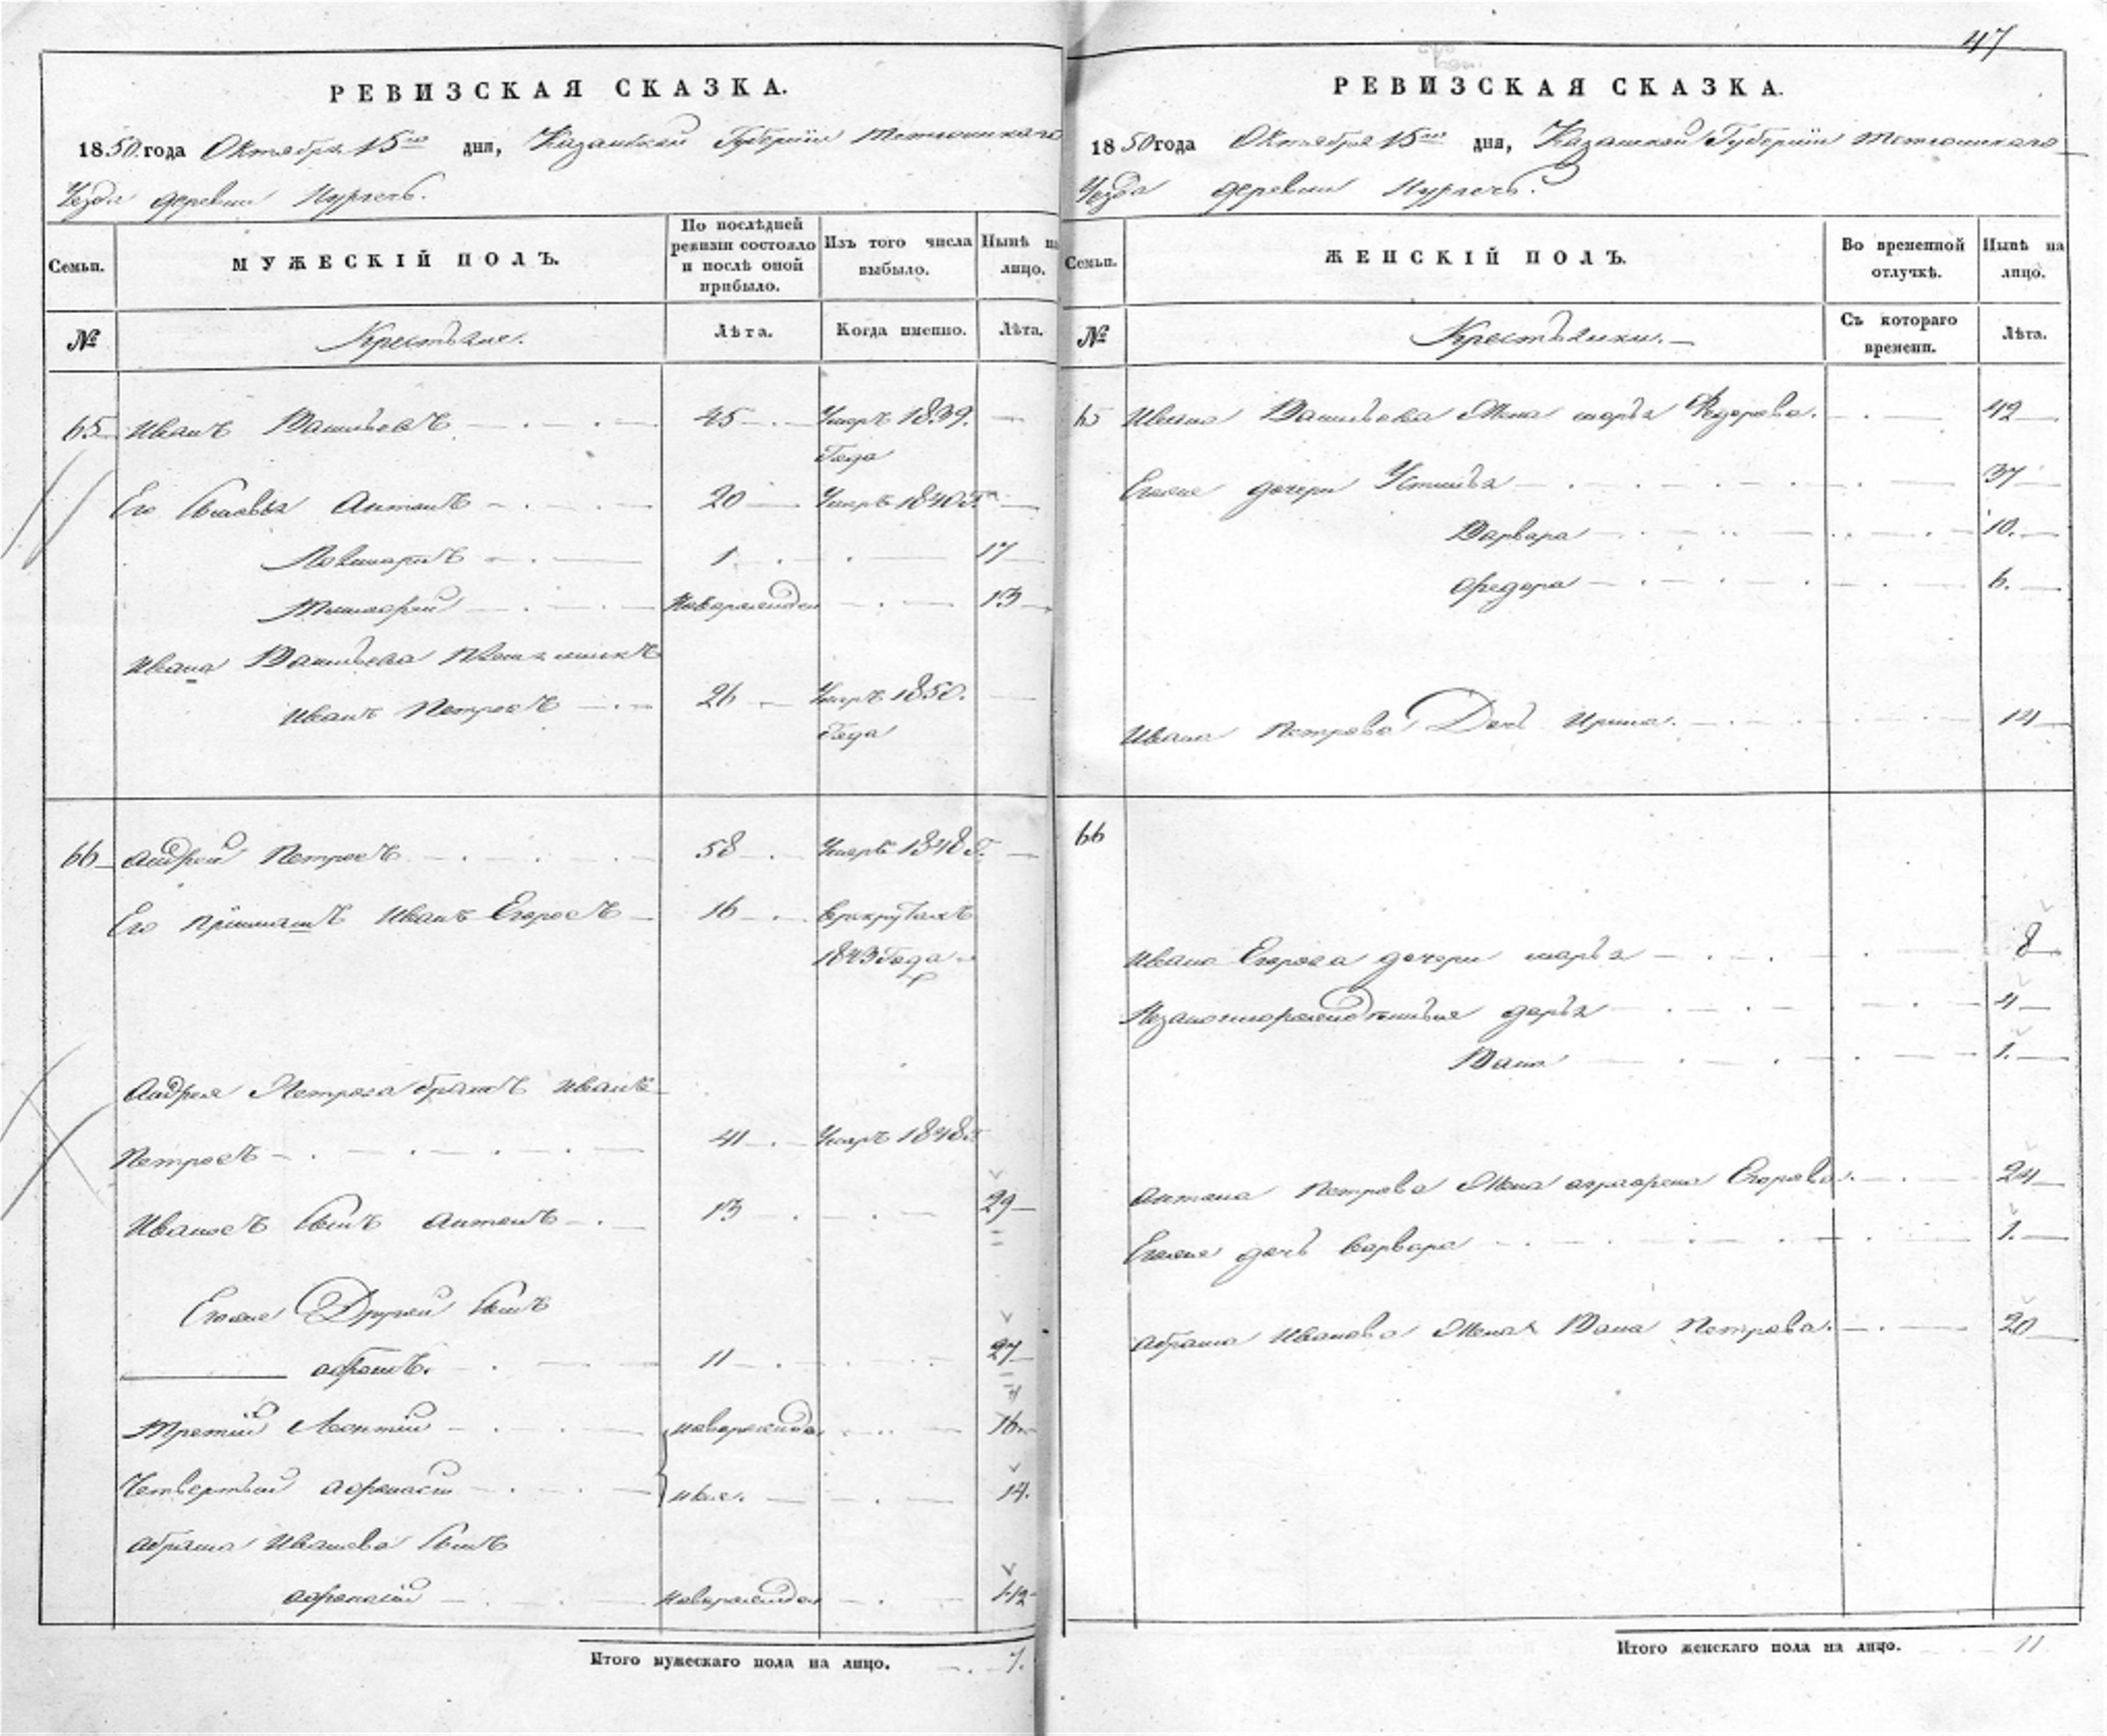 47
РЕВИЗСКАЯ СКАЗКА.
1850 года Октября 15го дня, Казанской Губернiи Тетюшскаго
Уезда деревни Нурлетъ.
Семьи.
МУЖЕСКIЙ ПОЛЪ.
По послѣдней ревизiи состояло и послѣ оной прибыло.
Изъ того числа выбыло.
Нынѣ на лицо.
№
Крестьяне.
Лѣта.
Когда именно.
Лѣта.
65 Иванъ Васильевъ 45 Умеръ 1839.
Года
Его Сыновья Антонъ 20 Умеръ 1840 Г.
1 17
Тимофей Новорожден 13
Ивана Васильева
Иванъ Петровъ 26 Умеръ 1850.
Года
66 Андрей Петровъ 58 Умеръ 1848 Г.
Его Прiимышъ Иванъ Егоровъ 16 в рекрутахъ
1843 Года
Андрея Петрова братъ Иванъ
Петровъ 41 Умеръ 1848 Г.
Ивановъ Сынъ Антонъ 13 29
Егоже Другой Сынъ
Абрамъ. 11 27
Третiй Леонтiй Новорожден 16
Четвертый Афонасiй 14.
Абрама Иванова Сынъ
Афонасiй Новорожден 1/2
Итого мужескаго пола на лицо. 7.
РЕВИЗСКАЯ СКАЗКА.
1850 года Октября 15го дня, Казанской Губернiи Тетюшскаго
Уезда деревни Нурлетъ.
Семьи.
ЖЕНСКIЙ ПОЛЪ.
Во временной отлучкѣ.
Нынѣ на лицо.
№
Крестьянки.
Съ котораго времени.
Лѣта.
65 Ивана Васильева Жена Марья Федорова. 42
Егоже дочери Устинья 37
Варвара 10.
Федора 6.
Ивана Петрова Дочь Ирина. 14
66
Ивана Егорова дочери Марья 8
Незаконнорожденныя Дарья 4
1.
Антона Петрова Жена Аграфена Егорова. 24
Егоже дочь Варвара 1.
Абрама Иванова Жена Петрова. 20
Итого женскаго пола на лицо. 11